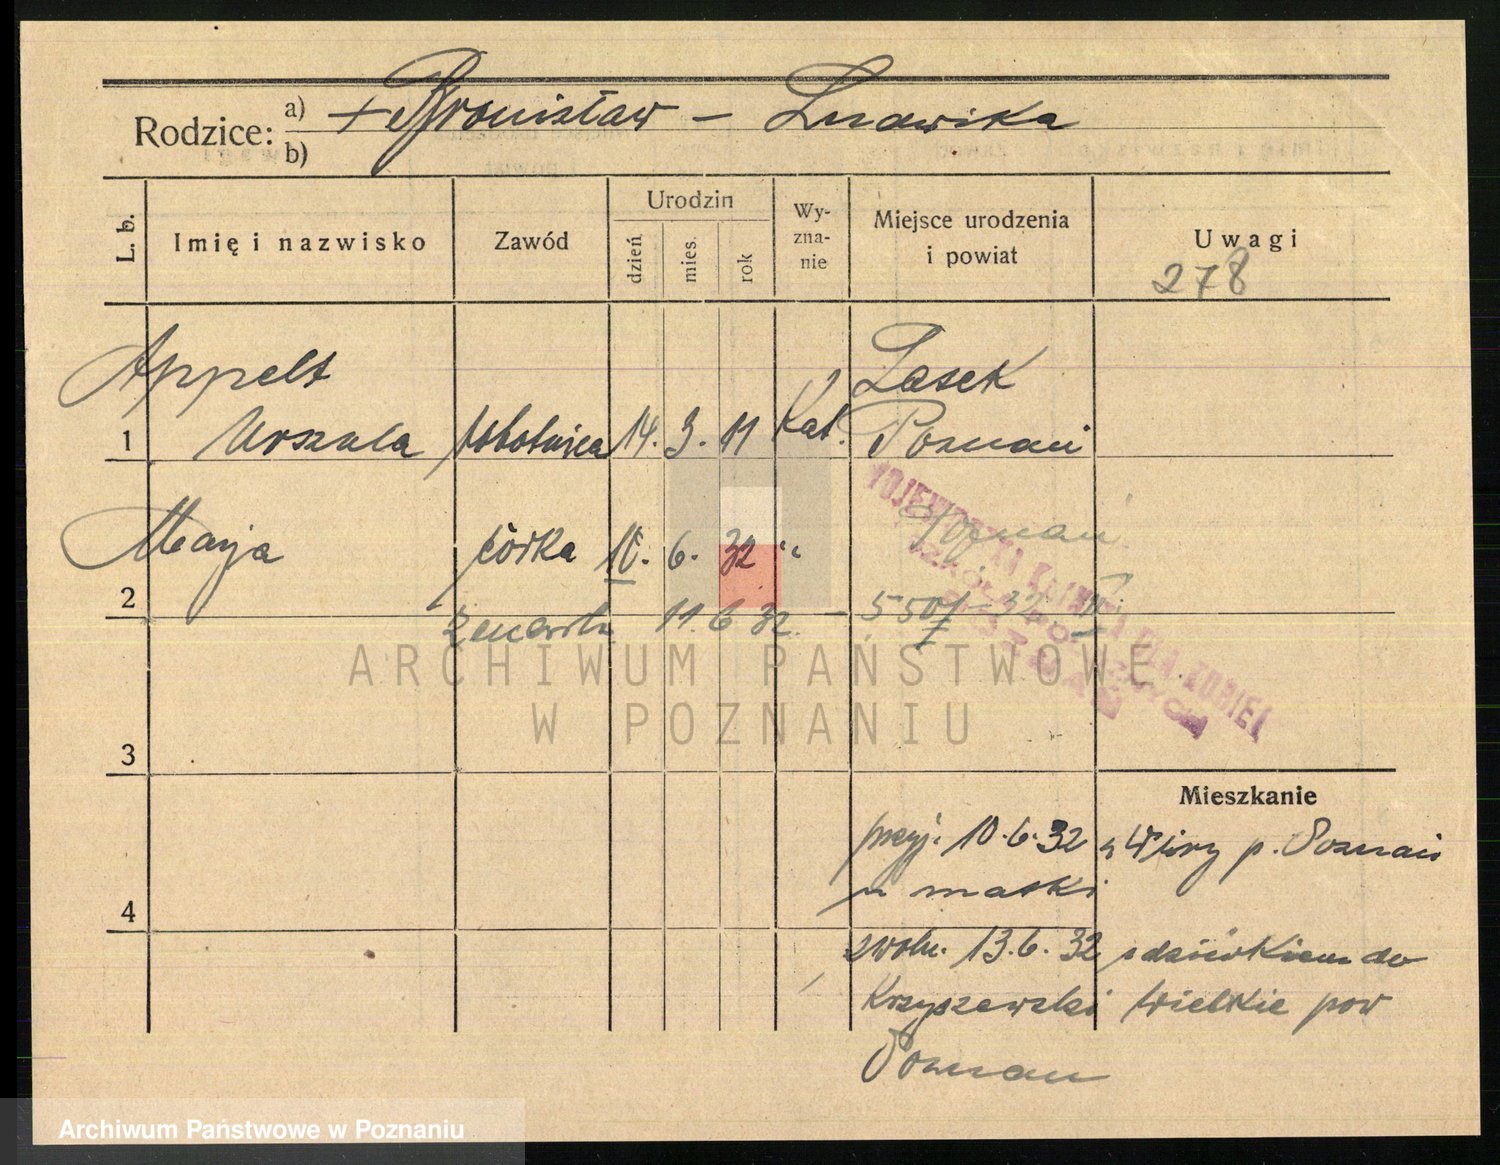 Rodzice: a) + Bronisław – Ludwika
b)
L. b. Imię i nazwisko Zawód Urodzin dzień mies. rok Wy-zna-nie Miejsce urodzenia i powiat Uwagi
278
Appelt Lasek
1 Urszula robotnica 14. 3. 11 Kat. Poznań
Marja córka 10. 6. 32 " Poznań
2
zmarła 11. 6 32. –
WOJEWÓDZKA KLINIKA DLA KOBIET
POZNAŃ
3
Mieszkanie
przyj. 10.6.32 z Wiry p. Poznań
u matki
4
zwoln. 13.6.32 do
Wielkie pow
Poznań
ARCHIWUM PAŃSTWOWE
W POZNANIU
Archiwum Państwowe w Poznaniu